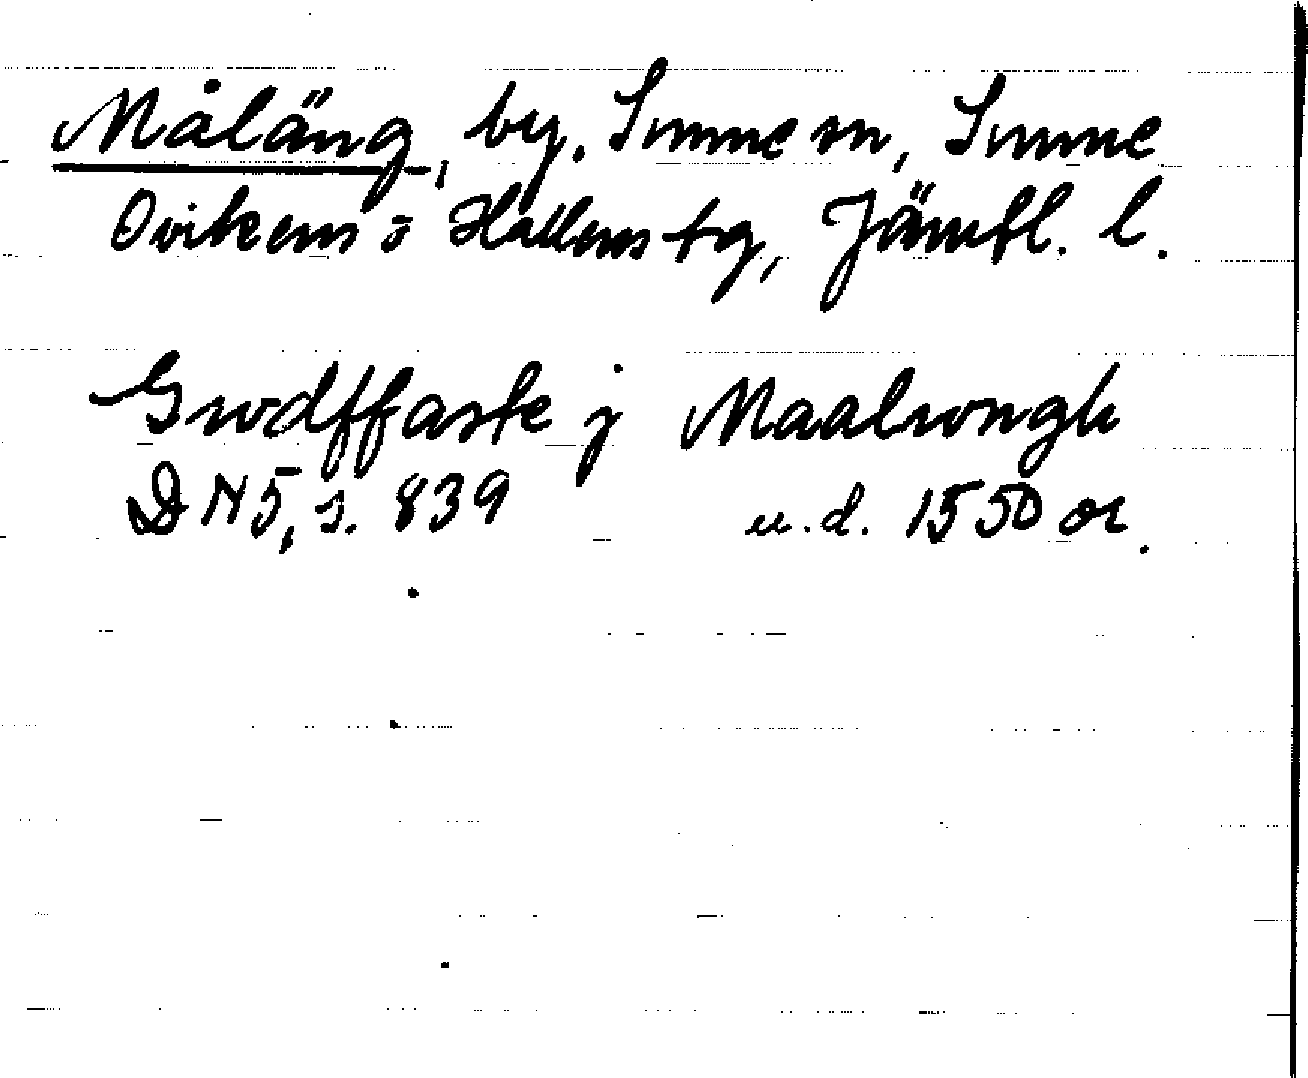 Måläng, by, Sunne sn, Sunne
Ovikens o Hallens tg, Jämtl. l.
Gudffaste j Maalwngh
DN5, s. 839 u.d. 1550 or.